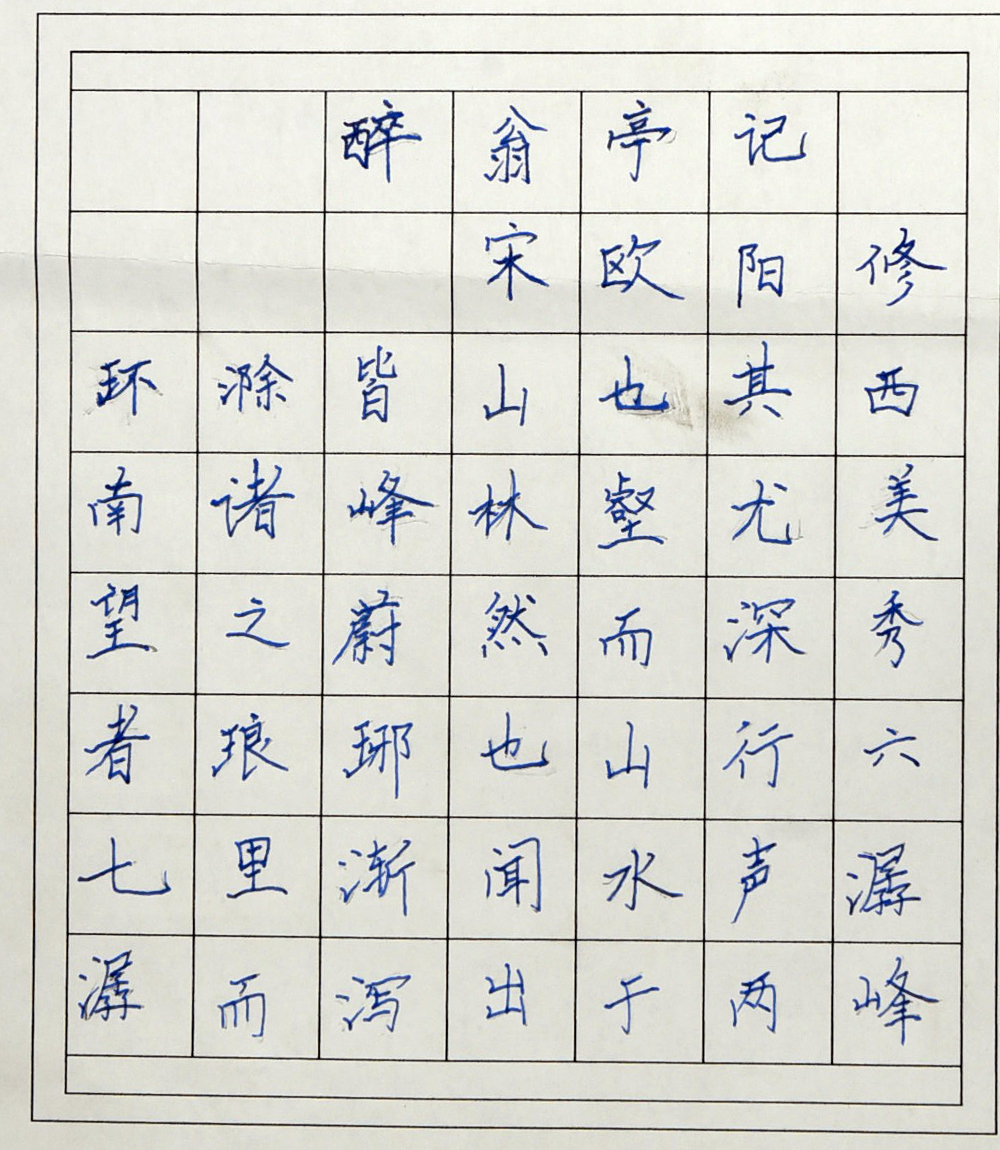 醉翁亭记
宋欧阳修
环滁皆山也其西
南诸峰林壑尤美
望之蔚然而深秀
者琅琊也山行六
七里渐闻水声潺
潺而泻出于两峰